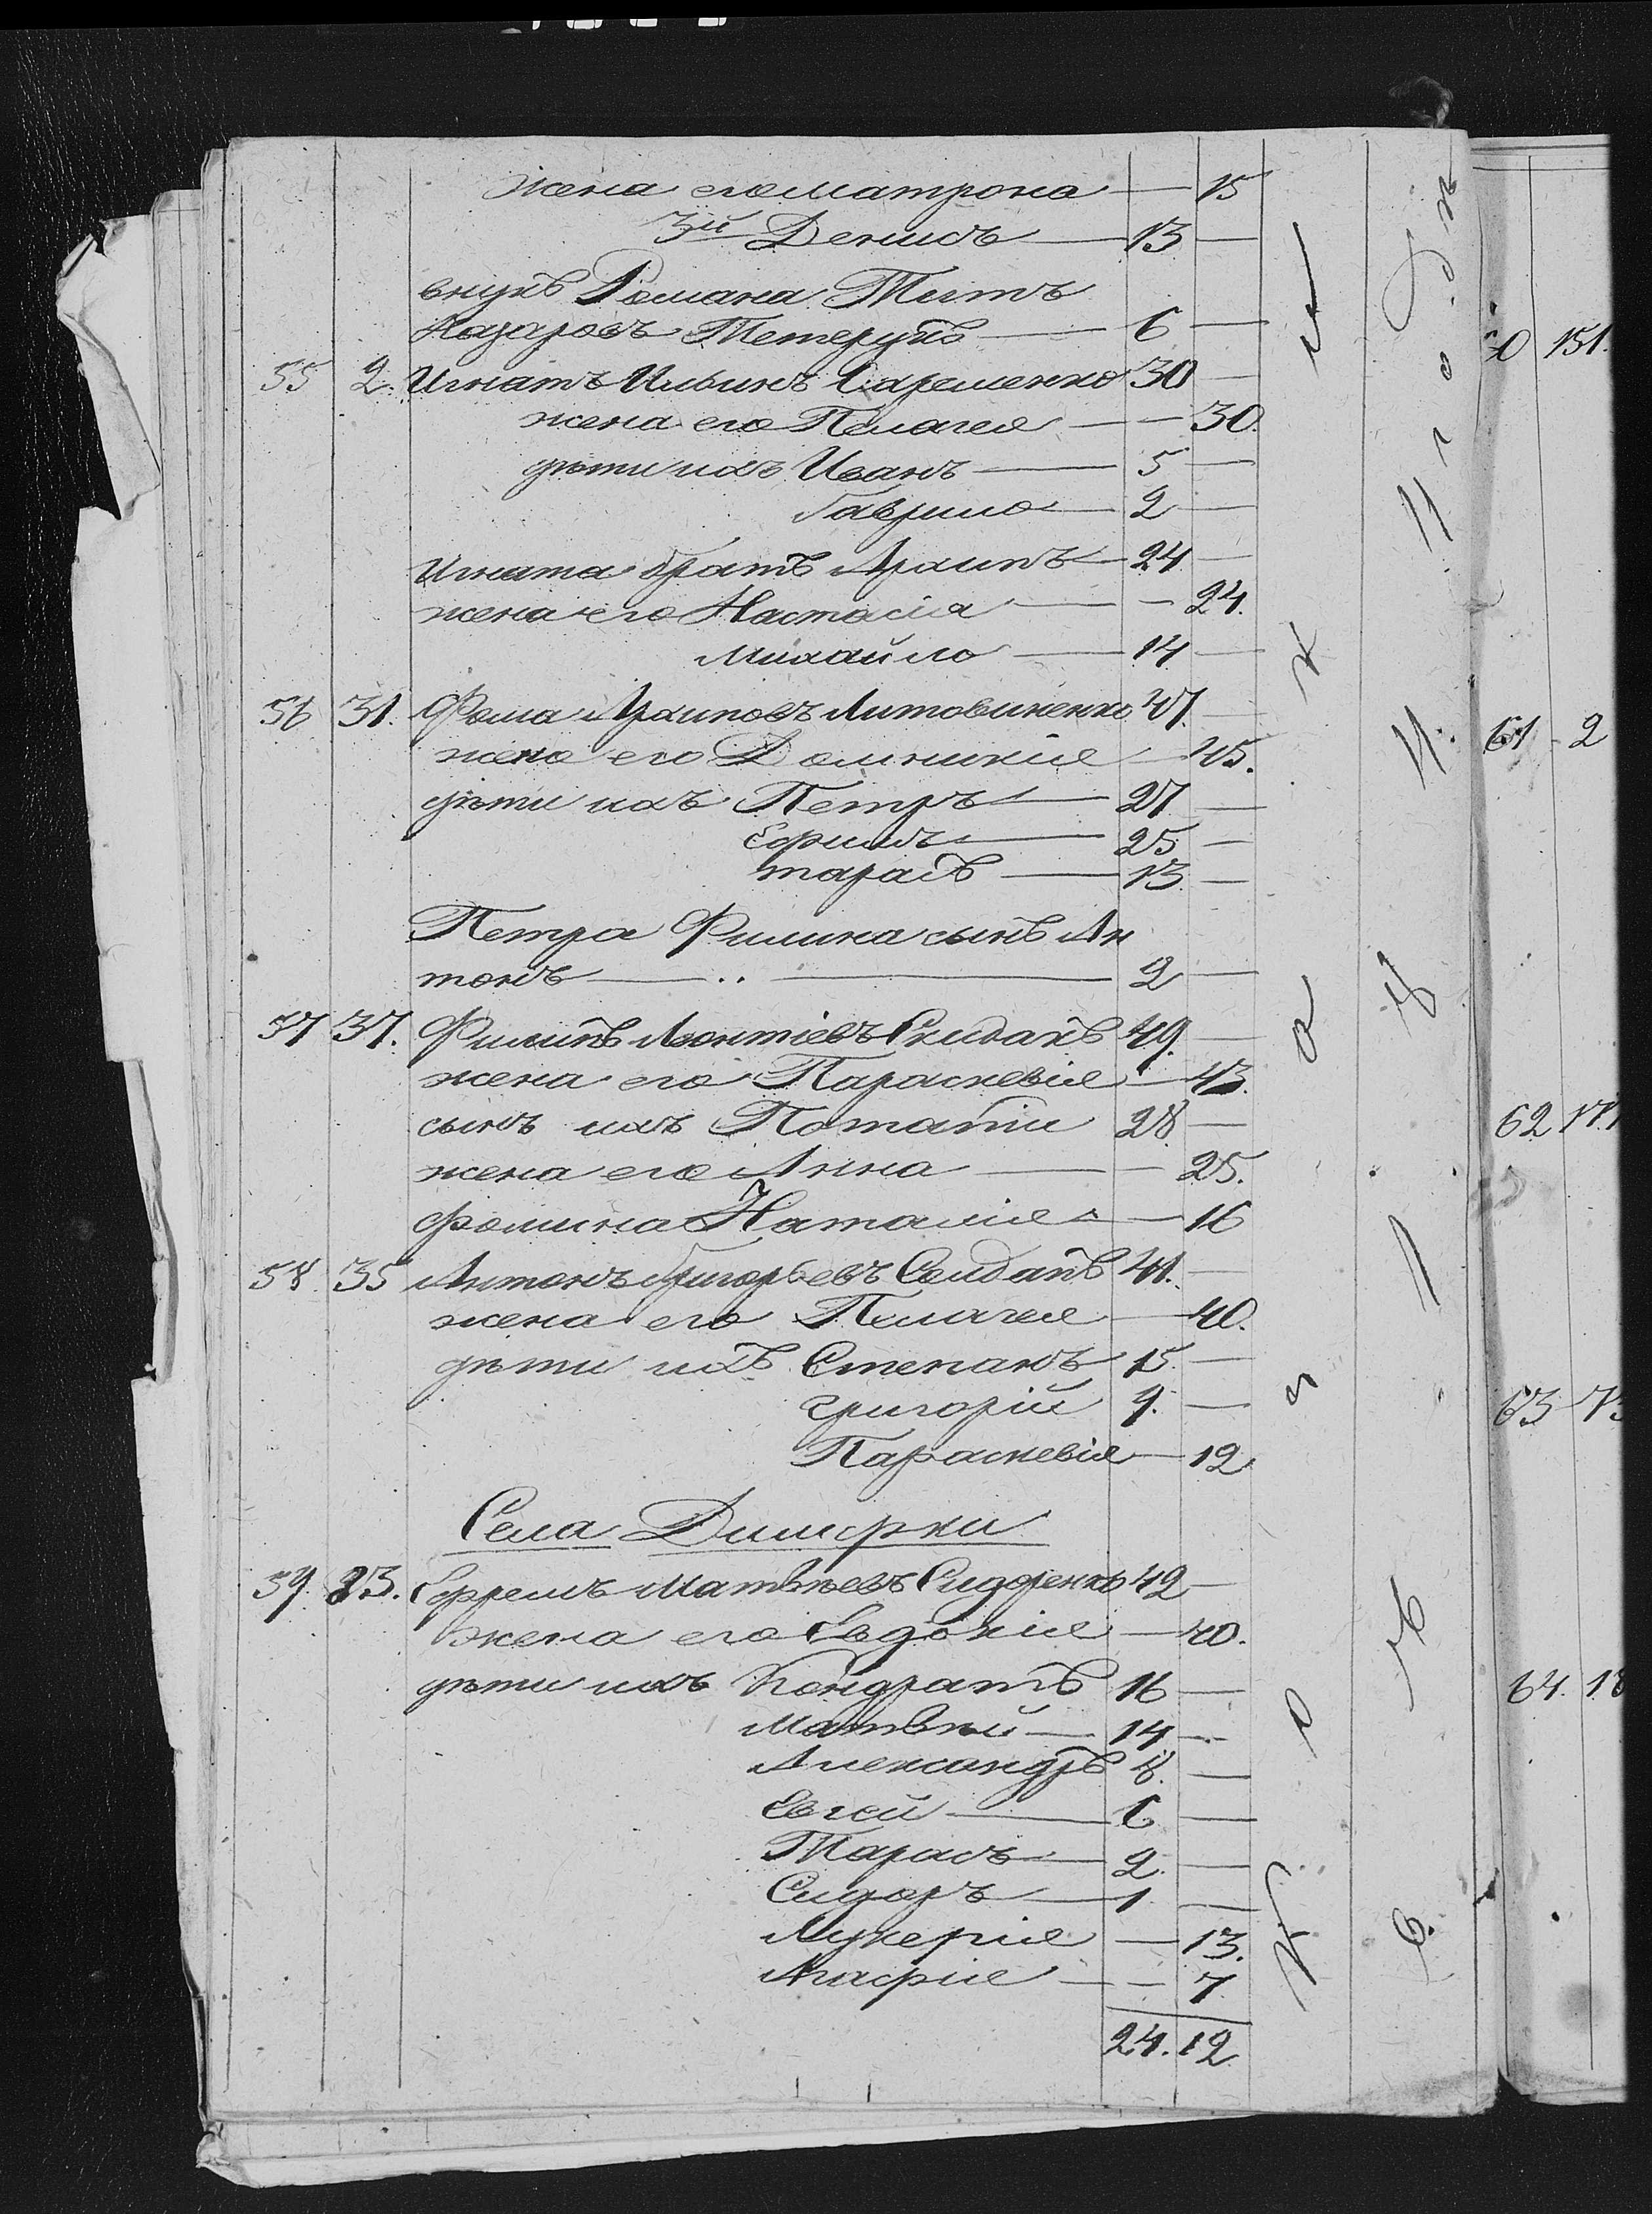 жена его Матрона — 15
3й Денисъ — 13 —
внукъ Романа Титъ
Назаровъ Тетерукъ — 6 —
55 2. Игнатъ Ильинъ 30 —
жена его Пелагея — — 30.
дѣти ихъ Иванъ — 5 —
Гаврило — 2 —
Игната братъ Архипъ — 24 —
жена его Настасія — — 24.
Михайло — 14 —
56 31. Фома Архиповъ Литовиненко 47. —
жена его Домникія — 45.
дѣти ихъ Петръ — 27 —
Ефимъ — 25 —
тарасъ — 13. —
Петра Филина сынъ Ан
тонъ — .. — 2 —
57 37. Филипъ Леонтіевъ Скиданъ 49. —
жена его Параскевія — 43.
сынъ ихъ Потапій 28 —
жена его Анна — — 25.
фомина Наталія — — 16
58 35 Антонъ Григорьевъ 41. —
жена его Пелагея — 40.
дѣти ихъ Степанъ 15. —
григорій 9. —
Параскевія — 12
Села Димерки
59. 23. Ефремъ Матвѣевъ Сидоренко 42 —
жена его Евдокія — 40.
дѣти ихъ Кондратъ 16 —
Матвѣй — 14 —
Александръ 8. —
Евсей — 6 —
Тарасъ — 2. —
Сидоръ — 1 —
Лукерія — 13.
Агафія — — 7
24. 12
151.
61 - 2
62 171
63
64. 18